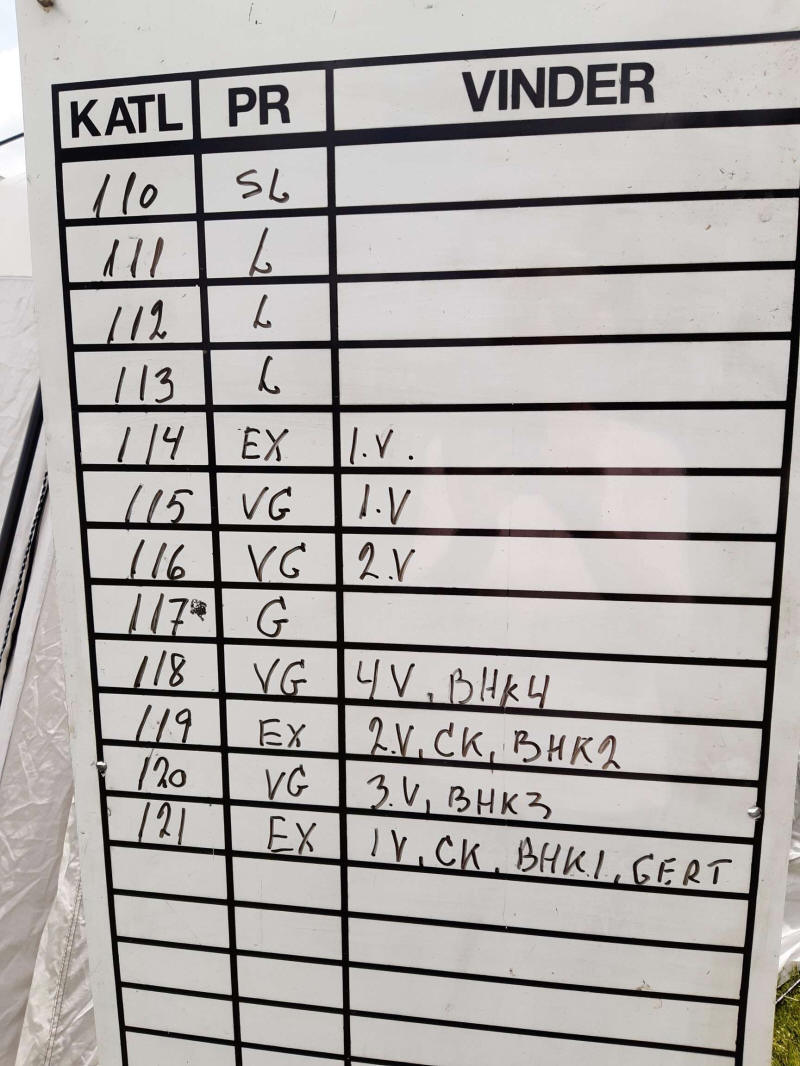 KATL PR VINDER
110 SL
111 L
112 L
113 L
114 EX 1.V.
115 VG 1.V
116 VG 2.V
117 G
118 VG 4V, BHK4
119 EX 2.V, CK, BHK2
120 VG 3.V, BHK3
121 EX 1V, CK, BHK1, CERT